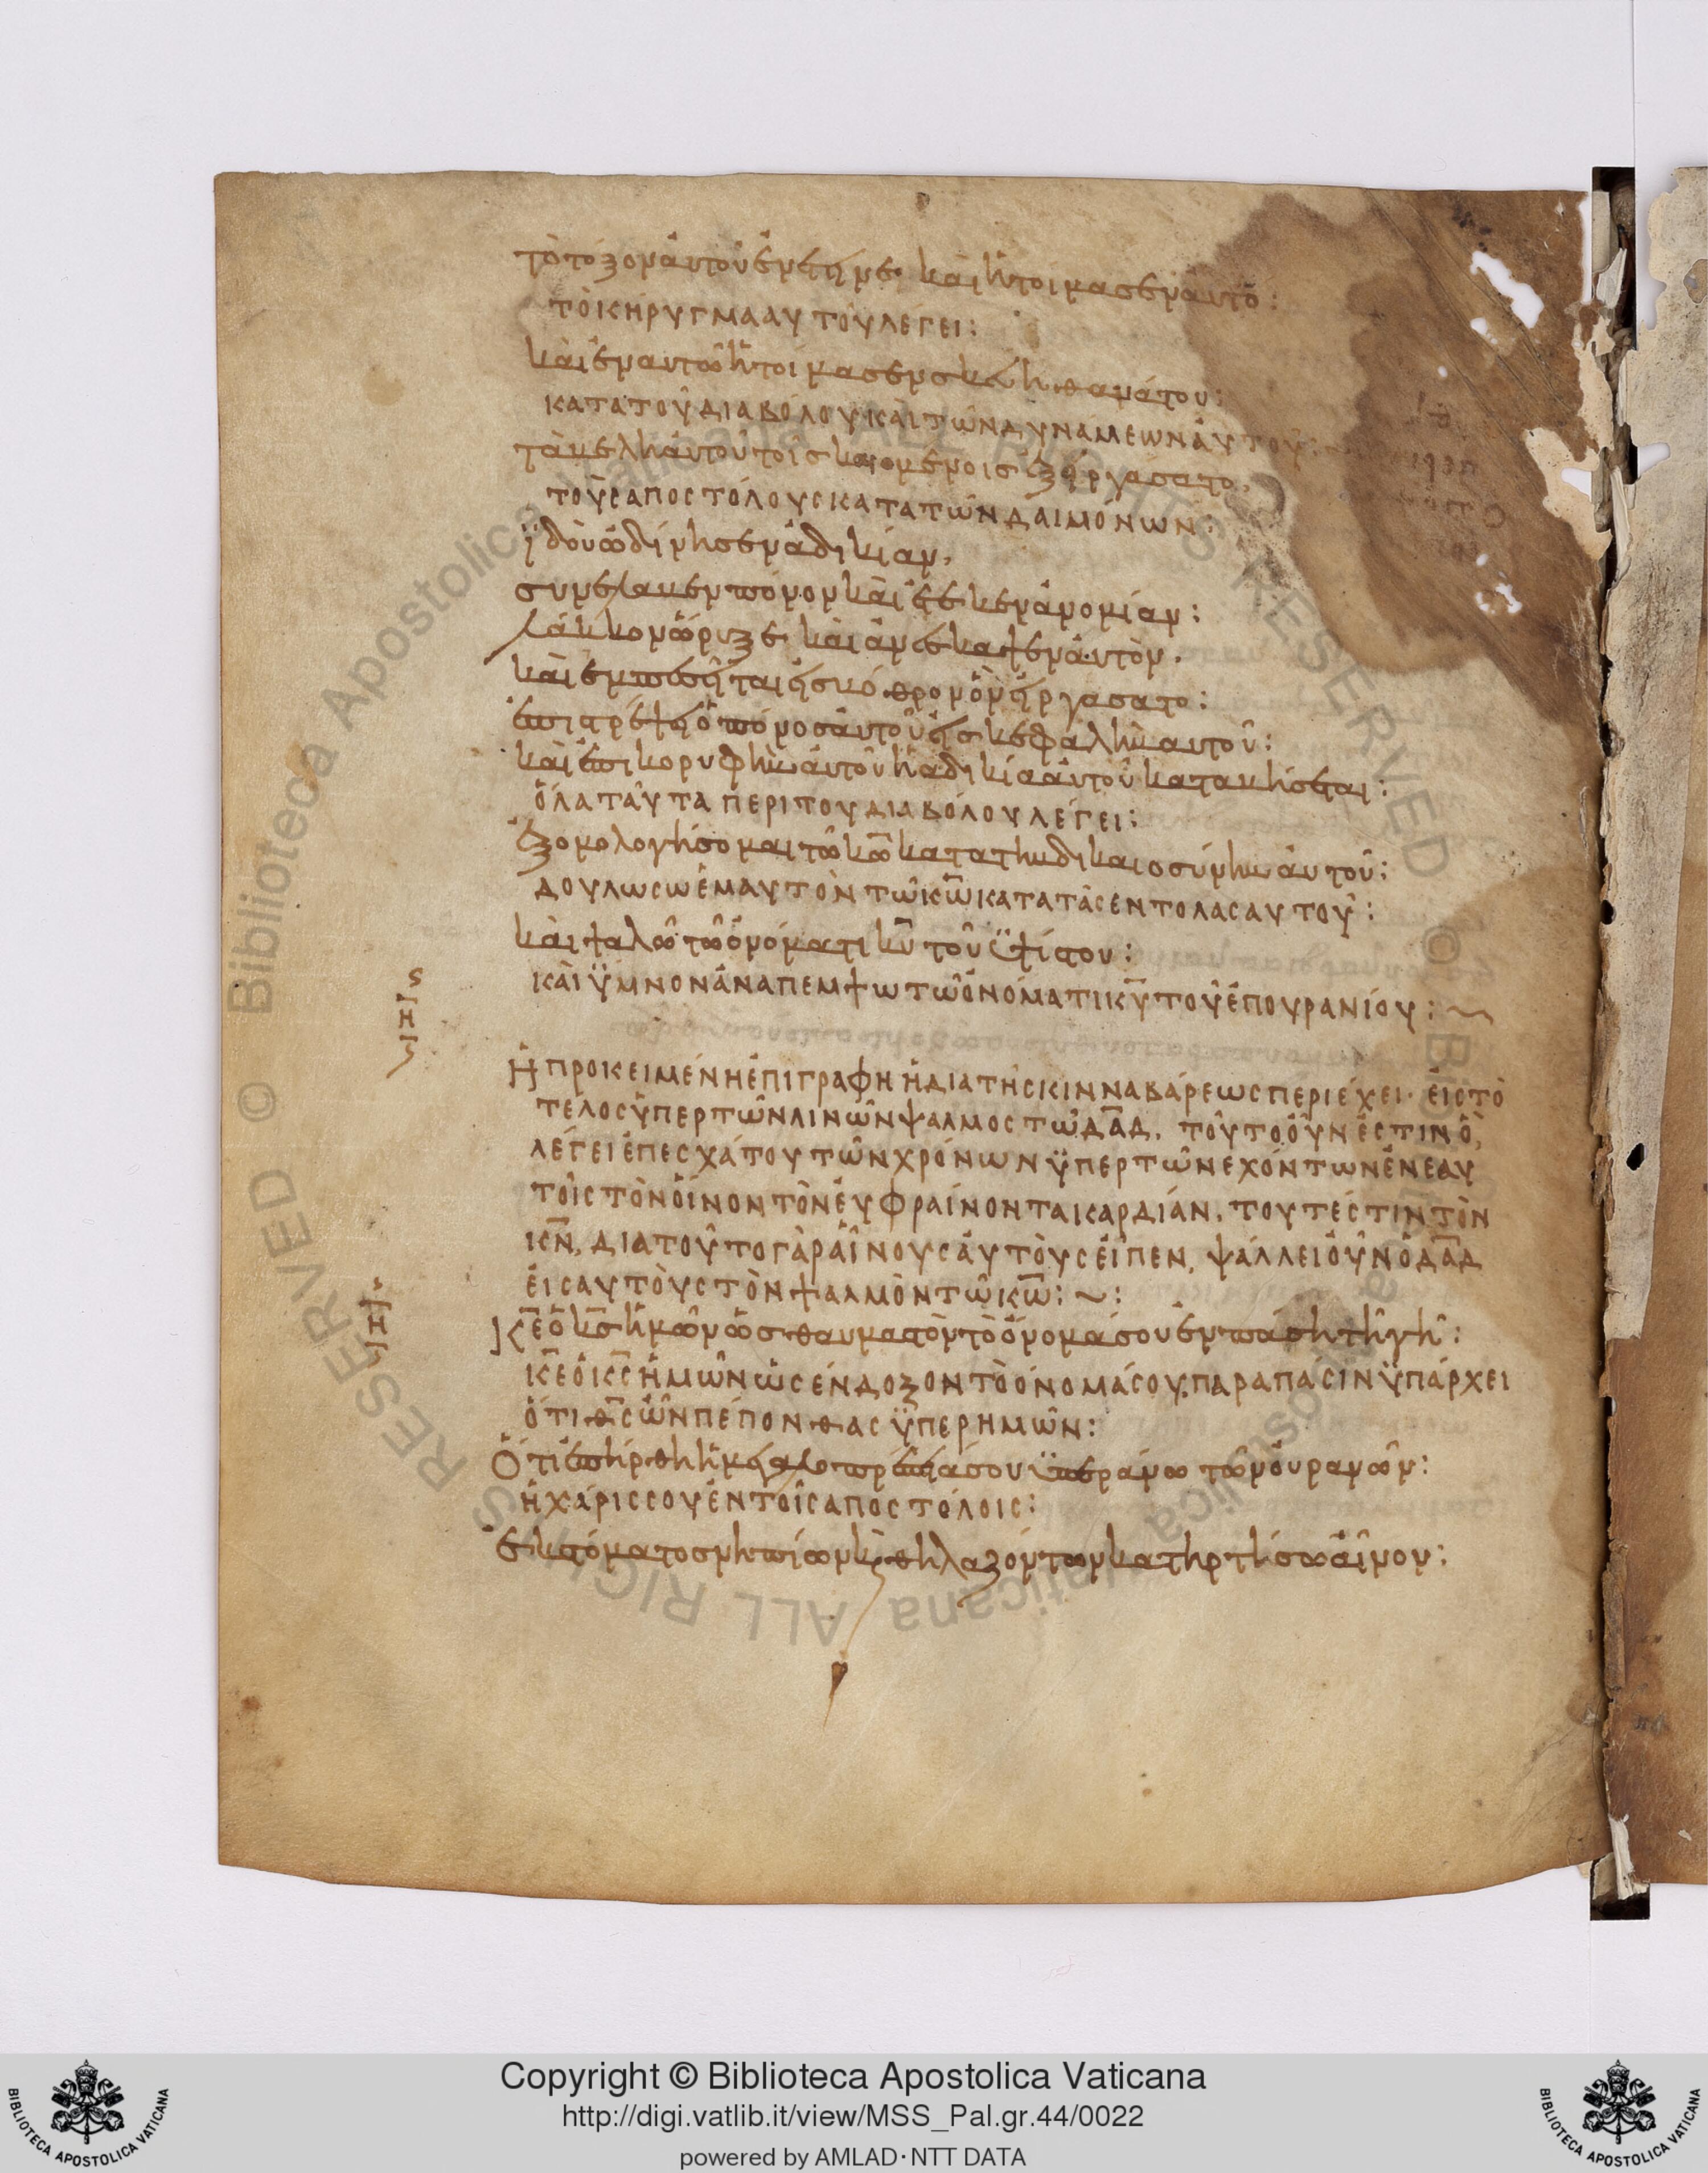 τὸ τόξον ἀυτοῦ ἐνέτεινε· καὶ ἡτοίμασεν ἀυτό:
ΤῸ ΚΉΡΥΓΜΑ ΑΥΤΟΥ͂ ΛΕΓΕΙ:
καὶ ἐν αυτῶ ἡτοίμασεν σκεύη θανάτου:
ΚΑΤᾺ ΤΟΥ͂ ΔΙΑΒΌΛΟΥ ΚᾺΙ ΤΩ͂Ν ΔΥΝΆΜΕΩΝ ἈΥΤΟΥ͂:
τὰ βέλη ἀυτοῦ τοῖσ καιομένοισ ἐξειργάσατο.
ΤΟῪΣ ΑΠΟΣΤΌΛΟΥΣ ΚΑΤᾺ ΤΩ͂Ν ΔΑΙΜΌΝΩΝ:
ϊδοὺ ὠδίνησεν ἀδικίαν.
συνέλαβεν πόνον καὶ ἔτεκεν ἀνομίαν:
λάκκον ὤρυξε καὶ ἀνέσκαψεν ἀυτὸν.
καὶ ἐμπεσεῖται εἰσ βόθρον ὃν εἰργάσατο:
ἐπιστρέψει ὁ πόνοσ ἀυτοῦ εἰσ κεφαλὴν αυτοῦ:
καὶ ἐπι κορυφὴν ἀυτοῦ ἡ αδικία ἀυτοῦ καταβήσεται:
ὍΛΑ ΤΑΥ͂ΤΑ ΠΕΡῚ ΤΟΥ ΔΙΑΒΌΛΟΥ ΛΈΓΕΙ:
ἐξομολογήσομαι τῶ κ̅ω̅ κατα τὴν δικαιοσύνην ἀυτοῦ:
ΔΟΥΛΩΣΩ ἘΜΑΥΤῸΝ ΤΩ͂ Κ̅Ω̅ ΚΑΤΑ ΤᾺΣ ΕΝΤΟΛΑΣ ΑΥΤΟΥ͂:
καὶ ψαλῶ τῶ ὀνόματι κ̅υ̅ τοῦ ϋψίστου:
ΚΑῚ ΫΜΝΟΝ ἈΝΑΠΕΜΨΩ ΤΩ͂ ὈΝΌΜΑΤΙ Κ̅Υ̅ ΤΟΥ͂ ἘΠΟΥΡΑΝΊΟΥ:
Ἡ ΠΡΟΚΕΙΜΈΝΗ ἘΠΙΓΡΑΦΗ Ἡ ΔΙΑ ΤΗ͂Σ ΚΙΝΝΑΒΆΡΕΩΣ ΠΕΡΙΈΧΕΙ· ἘΙΣ ΤῸ
ΤΕΛΟΣ ὙΠΕΡ ΤΩ͂Ν ΛΙΝΩ͂Ν ΨΑΛΜΟΣ ΤΩ͂ Δ̅Α̅Δ̅. ΤΟΥ͂ΤΟ ΟΥ͂Ν ἘΣΤΙΝ Ὃ
ΛΕΓΕΙ ἘΠ ΕΣΧΆΤΟΥ ΤΩ͂Ν ΧΡΌΝΩΝ ΫΠΕΡ ΤΩ͂Ν ΕΧΌΝΤΩΝ ἘΝ ΕΑΥ
ΤΟΙ͂Σ ΤῸΝ ὈΊΝΟΝ ΤῸΝ ἘΥΦΡΑΊΝΟΝΤΑ ΚΑΡΔΊΑΝ. ΤΟΥΤΈΣΤΙΝ ΤῸΝ
Κ̅Ν̅. ΔΙΑ ΤΟΥ͂ΤΟ ΓᾺΡ ἈΙΝΟΥΣ ἈΥΤῸΥΣ ἘΙΠΕΝ. ΨΆΛΛΕΙ ΟΥ͂Ν Ὁ Δ̅Α̅Δ̅
ἘΙΣ ΑΥΤῸΥΣ ΤῸΝ ΨΑΛΜῸΝ ΤΩ͂ Κ̅Ω̅: ~:
Κ̅Ε̅ ὁ κ̅σ̅ ἡμῶν ὡσ θαυμαστὸν τὸ ὄνομά σου ἐν πάση τῆ γῆ:
Κ̅Ε̅ Ὁ Κ̅Σ̅ ἩΜΩ͂Ν ὩΣ ΈΝΔΟΞΟΝ ΤῸ ὌΝΟΜΆ ΣΟΥ, ΠΑΡΑ ΠΑ͂ΣΙΝ ΫΠΆΡΧΕΙ
ὍΤΙ Θ̅Σ̅ ὬΝ ΠΈΠΟΝΘΑΣ ΫΠΕΡ ΗΜΩ͂Ν:
Ὅτι ἐπήρθη ἡ μεγαλοπρέπειά σου ϋπεράνω τῶν ὀυρανῶν:
Ἡ ΧΆΡΙΣ ΣΟΥ ἘΝ ΤΟΙ͂Σ ΑΠΟΣΤΌΛΟΙΣ:
ἐκ στόματοσ νηπίων κ̀ θηλαζόντων κατηρτίσω ἀῖνον:
Copyright © Biblioteca Apostolica Vaticana
http://digi.vatlib.it/view/MSS_Pal.gr.44/0022
powered by AMLAD·NTT DATA
BIBLIOTECA APOSTOLICA VATICANA
BIBLIOTECA APOSTOLICA VATICANA